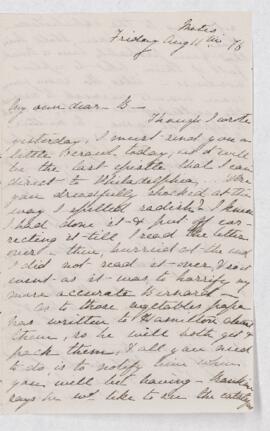 Metis
Friday Aug 11th 76
My own dear B—
Though I wrote
yesterday, I must send you a
little scrawl today, as it will
be the last epistle that I can
direct to Philadelphia. Were
you dreadfully shocked at the
way I spelled radish? I knew
I had done it & put off cor-
recting it till I read the letter
over – then, hurried at the end
I did not read it over, & so it
went as it was to horrify my
more accurate Bernard —
As to those vegetables papa
has written to Hamilton about
them, so he will both get &
pack them, & all you need
to do is to notify him when
you will be leaving –
says he wd. like to see the catalogue